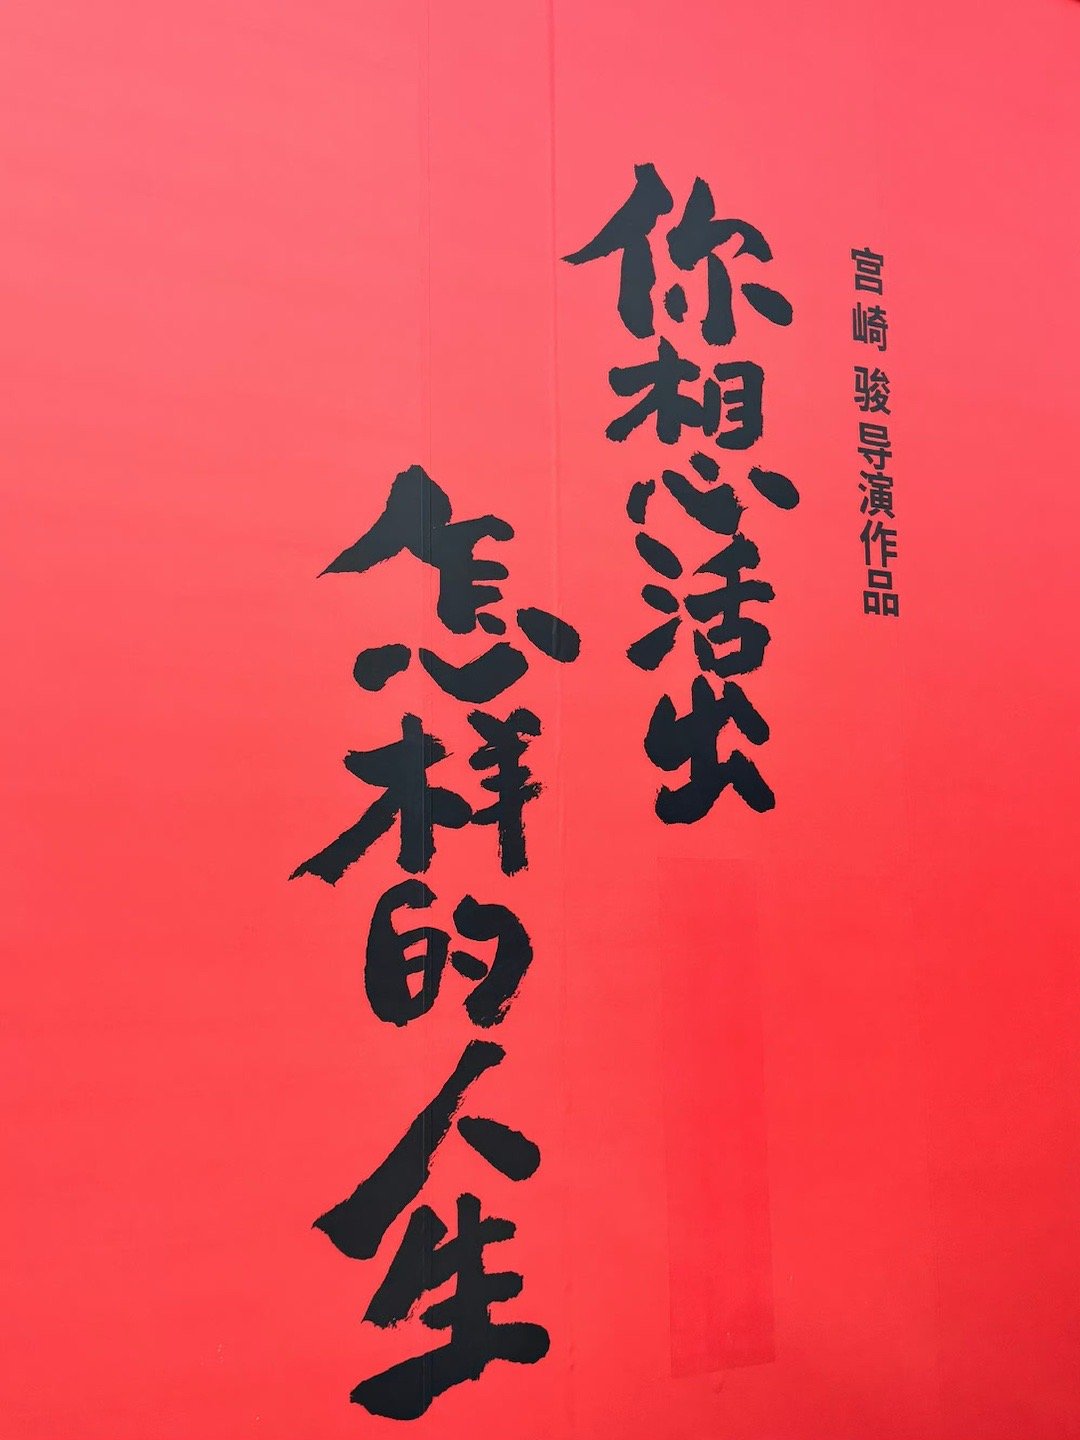 宫崎骏导演作品
你想活出
怎样的人生